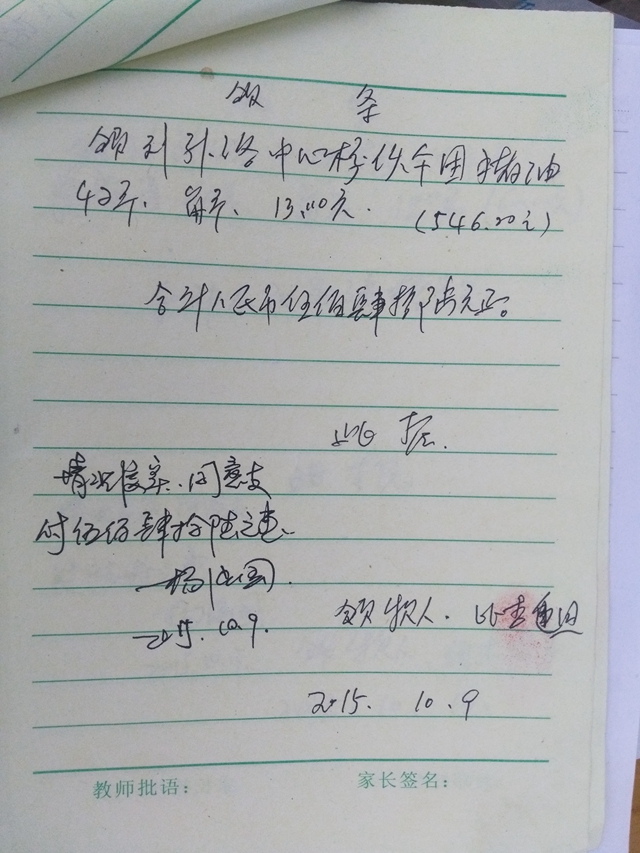 领 条
领到 中心校伙 用猪油
42斤. 每斤. 13.00元. (546.00元)
合计人民币伍佰肆拾陆元正。
此 据.
情况属实. 同意支
付伍佰肆拾陆元
杨
2015. 10. 9.
领款人.
2015. 10. 9
教师批语： 家长签名：